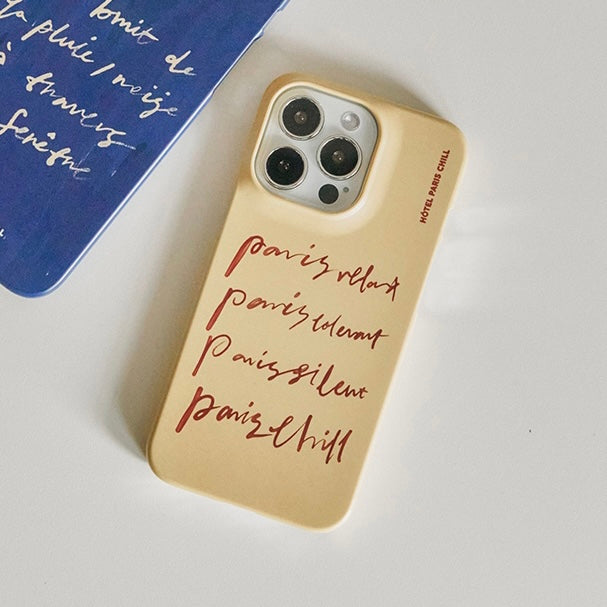 bruit de
la pluie / neige
à travers
fenêtre
HÔTEL PARIS CHILL
paris relax
paris tolerant
paris silent
paris chill